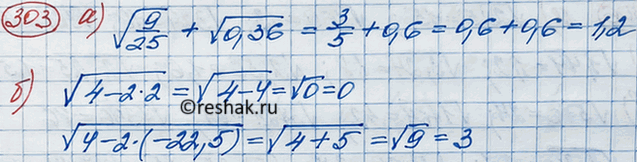 303 а) √(9/25) + √0,36 = 3/5 + 0,6 = 0,6 + 0,6 = 1,2
б) √(4-2·2) = √(4-4) = √0 = 0
©reshak.ru
√(4-2·(-22,5)) = √(4+5) = √9 = 3